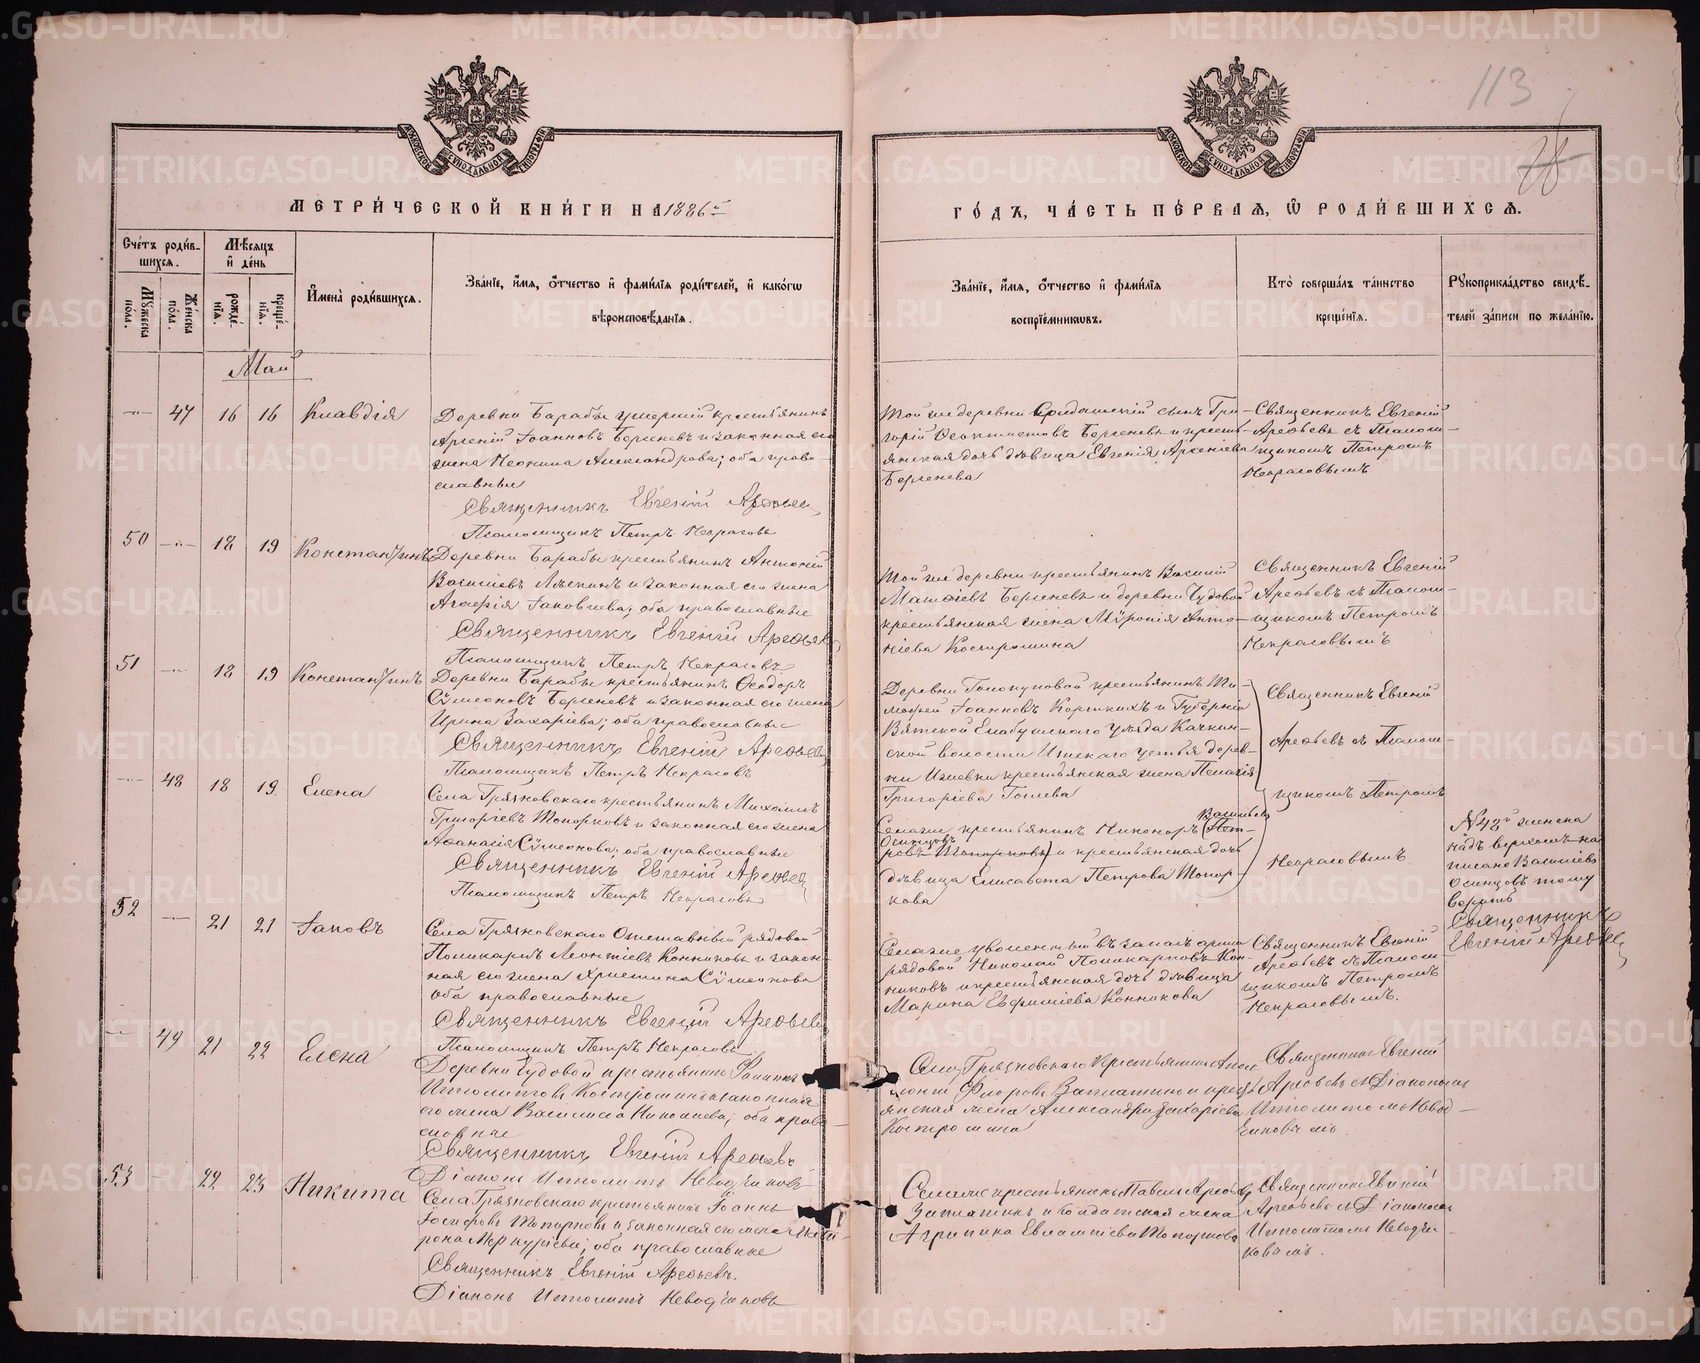 113
28
МОСКОВСКОЙ СѴНОДАЛЬНОЙ ТИПОГРАФІИ
МОСКОВСКОЙ СѴНОДАЛЬНОЙ ТИПОГРАФІИ
МЕТРИ́ЧЕСКОЙ КНИ́ГИ НА 1886 г.
ГО́ДЪ, ЧА́СТЬ ПЕ́РВАѦ, Ѿ РОДИ́ВШИХСѦ.
Сче́тъ роди́в-
шихсѧ.
Мꙋ́жеска по́ла.
Же́нска по́ла.
Мѣ́сѧцъ
и҆ де́нь
рожде́-нїѧ.
креще́-нїѧ.
И҆мена̀ роди́вшихсѧ.
Зва́нїе, и҆́мѧ, ѻ҆́тчество и҆ фами́лїѧ роди́телей, и҆ како́гѡ
вѣроисповѣ́данїѧ.
Зва́нїе, и҆́мѧ, ѻ҆́тчество и҆ фами́лїѧ
воспрїе́мникѡвъ.
Кто̀ соверша́лъ та́инство
креще́нїѧ.
Рꙋкоприкла́дство свидѣ́-
телей за́писи по жела́нїю.
Май
47 16 16 Клавдія
Деревни Барабы умершій крестьянинъ
Арсеній Іоанновъ Берсеневъ и законная его
жена Неонила Александрова; оба право-
славные
Священникъ Евгеній Арефьевъ
Псаломщикъ Петръ Некрасовъ
Той же деревни Солдатскій сынъ Гри-
горій Берсеневъ и кресть-
янская дочь дѣвица Евгенія Арсеніева
Берсенева
Священникъ Евгеній
Арефьевъ съ Псалом-
щикомъ Петромъ
Некрасовымъ
50 18 19 Константинъ
Деревни Барабы крестьянинъ Антоній
Васильевъ и законная его жена
Агафія Іаковлева; оба православные
Священникъ Евгеній Арефьевъ
Псаломщикъ Петръ Некрасовъ
Той же деревни крестьянинъ Василій
Матфіевъ Берсеневъ и деревни Чудовой
крестьянская жена Мѵронія Анто-
ніева Костромина
Священникъ Евгеній
Арефьевъ съ Псалом-
щикомъ Петромъ
Некрасовымъ
51 18 19 Константинъ
Деревни Барабы крестьянинъ Ѳеодоръ
Сѵмеоновъ Берсеневъ и законная его жена
Ирина Захаріева; оба православные
Священникъ Евгеній Арефьевъ
Псаломщикъ Петръ Некрасовъ
Деревни крестьянинъ Ти-
моѳей Іоанновъ Короткихъ и Губерніи
Вятской Елабужскаго уѣзда
волости устья дерев-
ни крестьянская жена Пелагія
Григоріева
Священникъ Евгеній
Арефьевъ съ Псалом-
щикомъ Петромъ
Некрасовымъ
48 18 19 Елена
Села Грязновскаго крестьянинъ Михаилъ
Григоріевъ Топорковъ и законная его жена
Аѳанасія Сѵмеонова; оба православные
Священникъ Евгеній Арефьевъ
Псаломщикъ Петръ Некрасовъ
Васильевъ
Селаже крестьянинъ Никоноръ (Пет-
Осинцовъ
ровъ Топорковъ) и крестьянская дочь
дѣвица Елисавета Петрова Топор-
кова
№ 48й женска
надъ верхомъ на
писано Васильевъ
Осинцовъ тому
верить
Священникъ
Евгеній Арефьевъ
52 21 21 Іаковъ
Села Грязновскаго Отставный рядовой
Поликарпъ Леонтіевъ Конниковъ и закон-
ная его жена Христина Сѵмеонова
оба православные
Священникъ Евгеній Арефьевъ
Псаломщикъ Петръ Некрасовъ
Селаже уволенный въ запасъ арміи
рядовой Николай Поликарповъ Кон-
никовъ и крестьянская дочь дѣвица
Марина Евфиміева Конникова
Священникъ Евгеній
Арефьевъ съ Псалом
щикомъ Петромъ
Некрасовымъ.
49 21 22 Елена
Деревни Чудовой крестьянинъ Филиппъ
Ипполитовъ Костроминъ и законная
его жена Василиса Николаева; оба право-
славные
Священникъ Евгеній Арефьевъ
Діаконъ Ипполитъ Неводчиковъ
Села Грязновскаго Крестьянинъ
Флоровъ Заплатинъ и кресть
янская жена Александра Захаріева
Костромина
Священникъ Евгеній
Арефьевъ съ Діакономъ
Ипполитомъ Невод-
чиковымъ.
53 22 23 Никита
Села Грязновскаго крестьянинъ Іоаннъ
Іосифовъ Топорковъ и законная его жена Мат-
рона Меркуріева; оба православные
Священникъ Евгеній Арефьевъ.
Діаконъ Ипполитъ Неводчиковъ
Селаже крестьянинъ Павелъ Арефьевъ
Заплатинъ и солдатская жена
Агрипина Евлампіева Топоркова
Священникъ Евгеній
Арефьевъ съ Діакономъ
Ипполитомъ Неводчи-
ковымъ.
METRIKI.GASO-URAL.RU